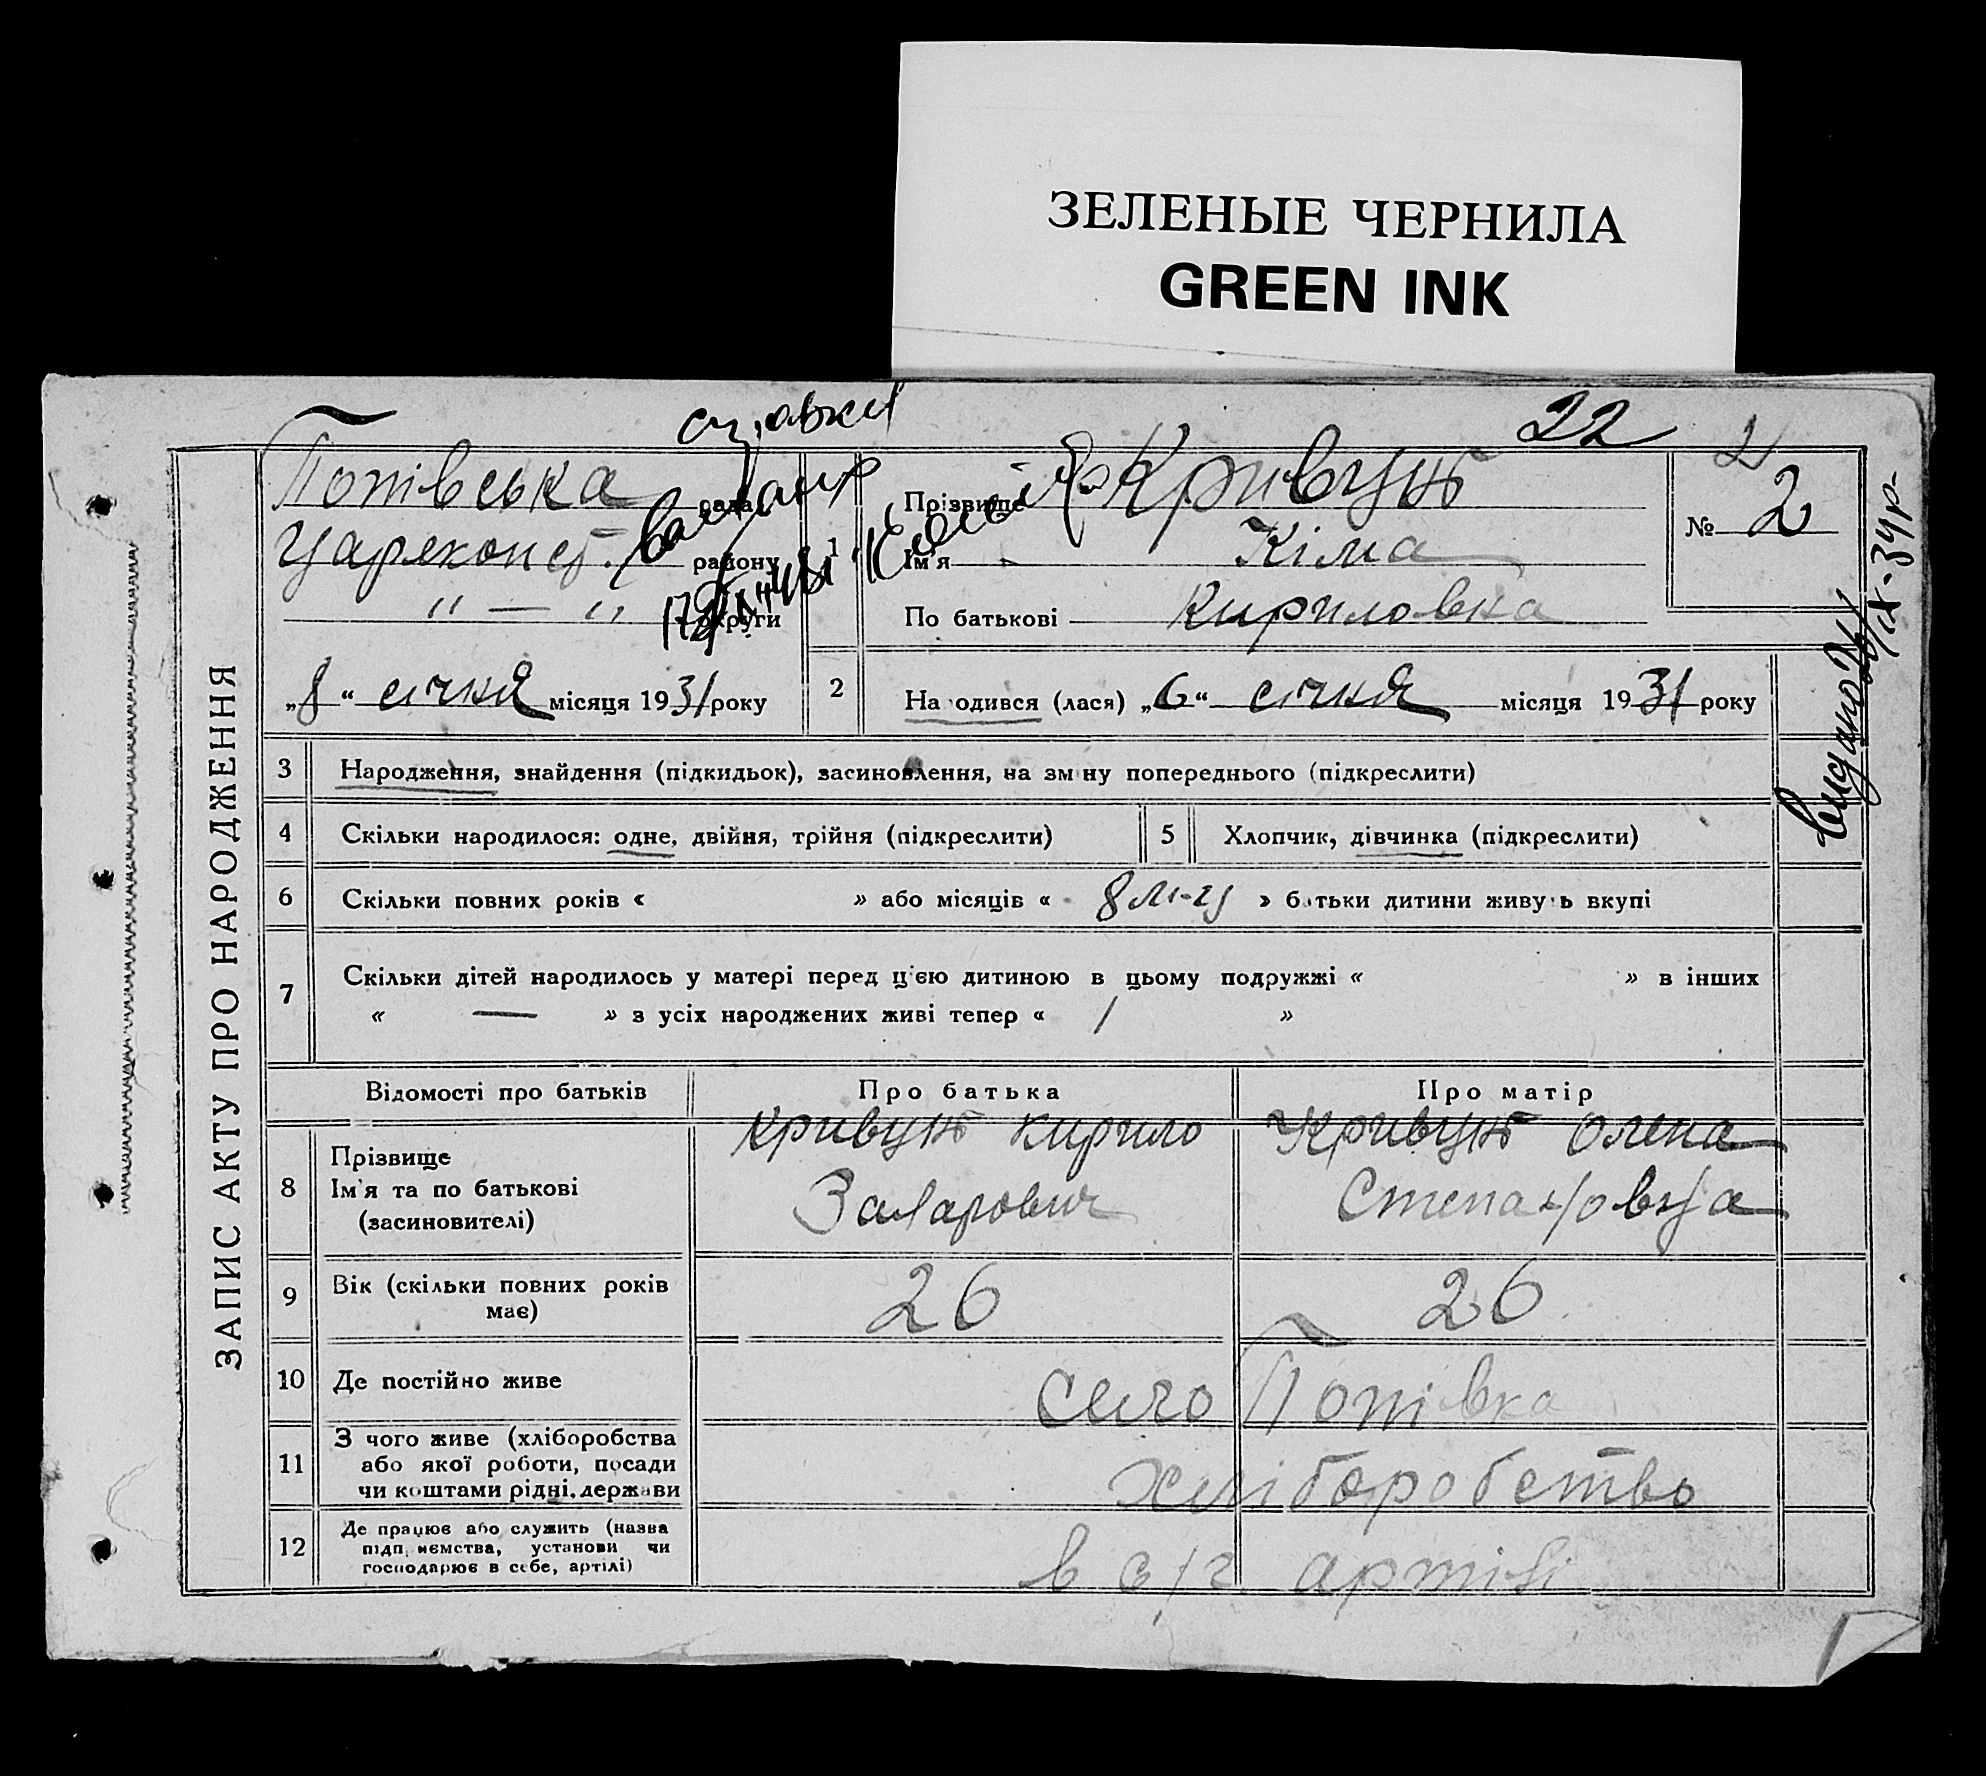 ЗЕЛЕНЫЕ ЧЕРНИЛА
GREEN INK
22
2
ЗАПИС АКТУ ПРО НАРОДЖЕННЯ
Попівська рада
району
" — " округи
„8" січня місяця 1931 року
1
Прізвище Кривуць
Ім'я Кіма
По батькові Кириловна
№ 2
2
Народився (лася) „6" січня місяця 1931 року
видано 26/IX-34р-
3 Народження, знайдення (підкидьок), засиновлення, на зміну попереднього (підкреслити)
4 Скільки народилося: одне, двійня, трійня (підкреслити)
5 Хлопчик, дівчинка (підкреслити)
6 Скільки повних років « » або місяців « 8 м-ц » батьки дитини живуть вкупі
7 Скільки дітей народилось у матері перед цією дитиною в цьому подружжі « » в інших
« — » з усіх народжених живі тепер « 1 »
Відомості про батьків Про батька Про матір
8 Прізвище
Ім'я та по батькові
(засиновителі)
Кривуць Кирило
Захарович
Кривуць Олена
Степановна
9 Вік (скільки повних років
має)
26 26
10 Де постійно живе село Попівка
11 З чого живе (хліборобства
або якої роботи, посади
чи коштами рідні, держави
хліборобство
12 Де працює або служить (назва
підприємства, установи чи
господарює в себе, артілі)
в с/г артілі